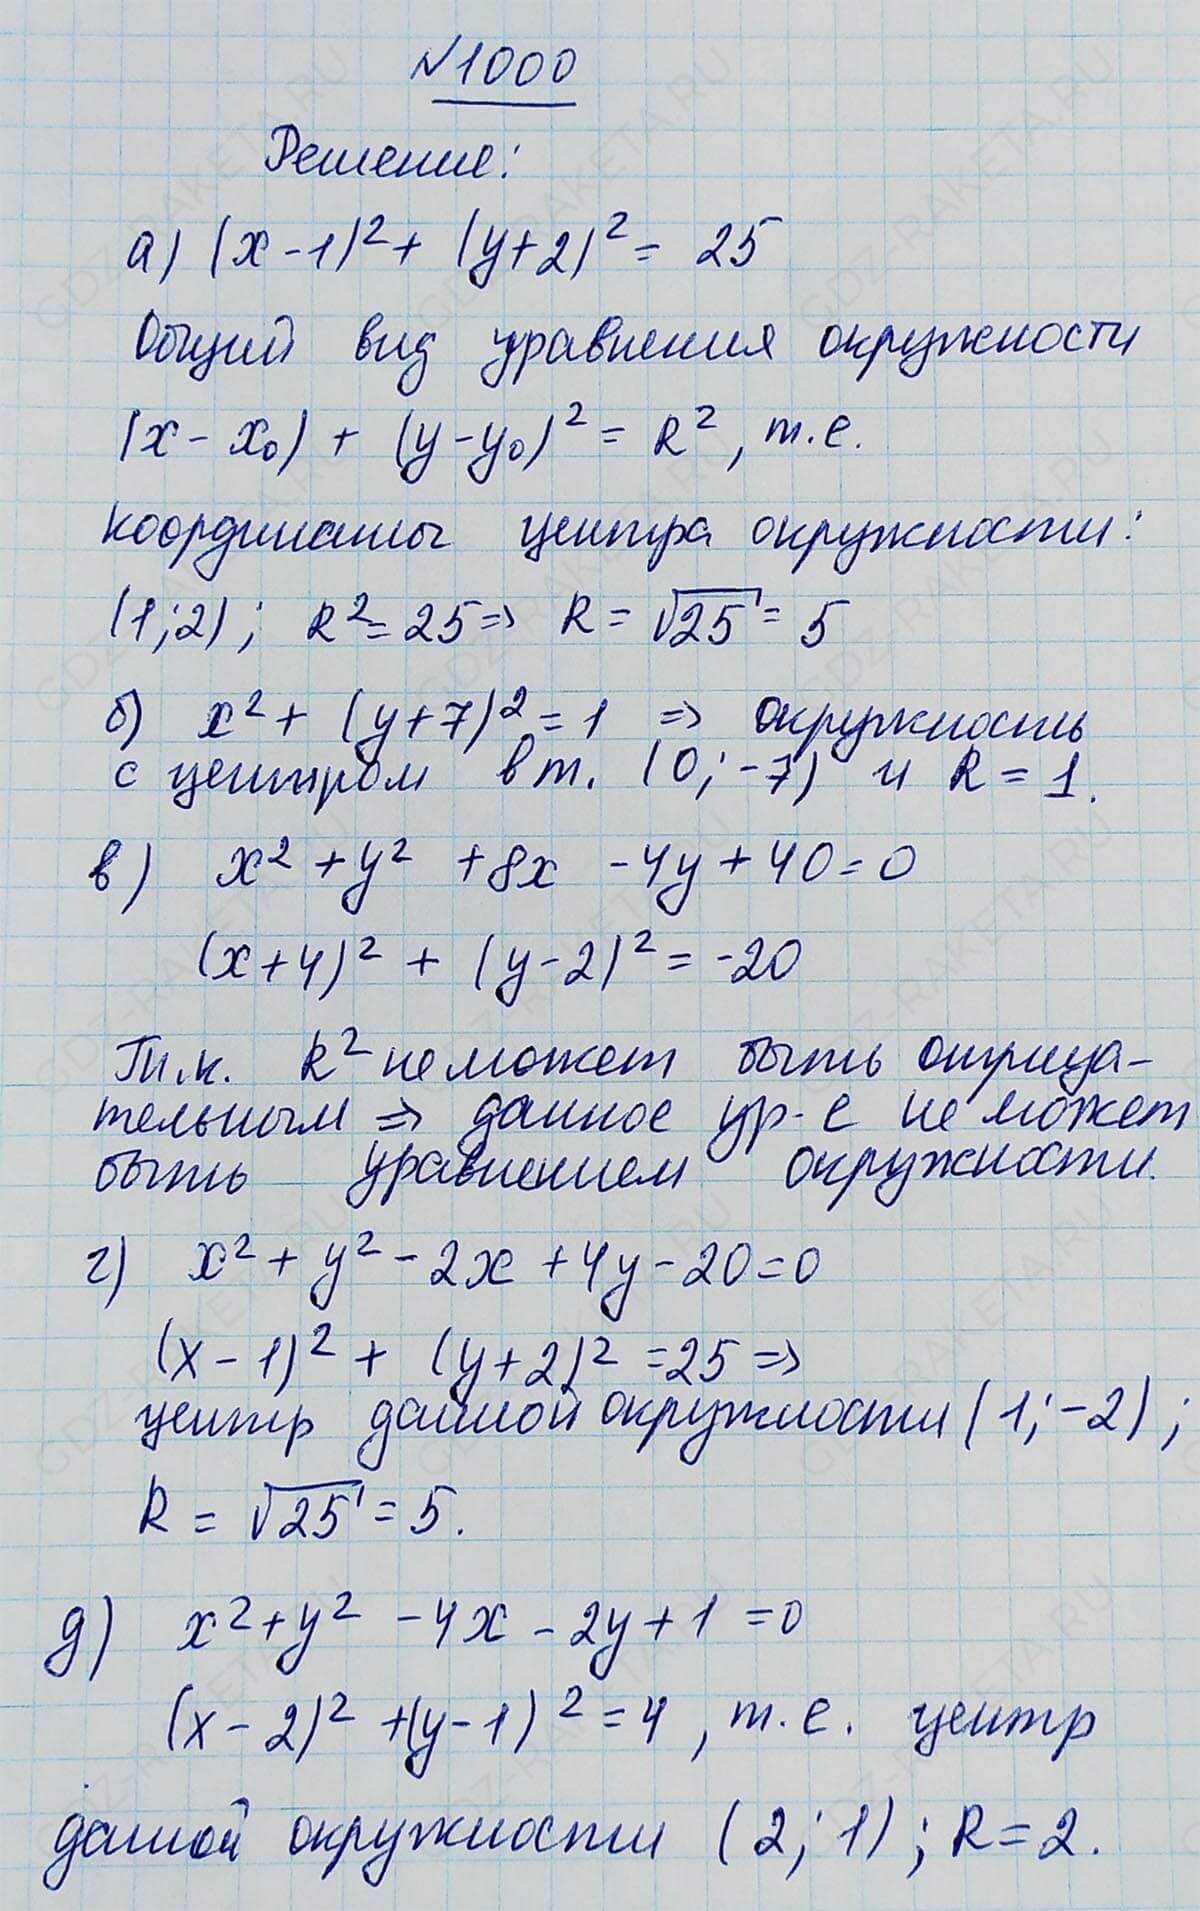 №1000
Решение:
а) (x-1)² + (y+2)² = 25
Общий вид уравнения окружности
(x - x₀) + (y - y₀)² = R², т.е.
координаты центра окружности:
(1; 2); R² = 25 => R = √25 = 5
б) x² + (y+7)² = 1 => окружность
с центром в т. (0; -7) и R = 1.
в) x² + y² + 8x - 4y + 40 = 0
(x+4)² + (y-2)² = -20
Т.к. R² не может быть отрица-
тельным => данное ур-е не может
быть уравнением окружности.
г) x² + y² - 2x + 4y - 20 = 0
(x-1)² + (y+2)² = 25 =>
центр данной окружности (1; -2);
R = √25 = 5.
д) x² + y² - 4x - 2y + 1 = 0
(x-2)² + (y-1)² = 4, т.е. центр
данной окружности (2; 1); R = 2.
GDZ-RAKETA.RU